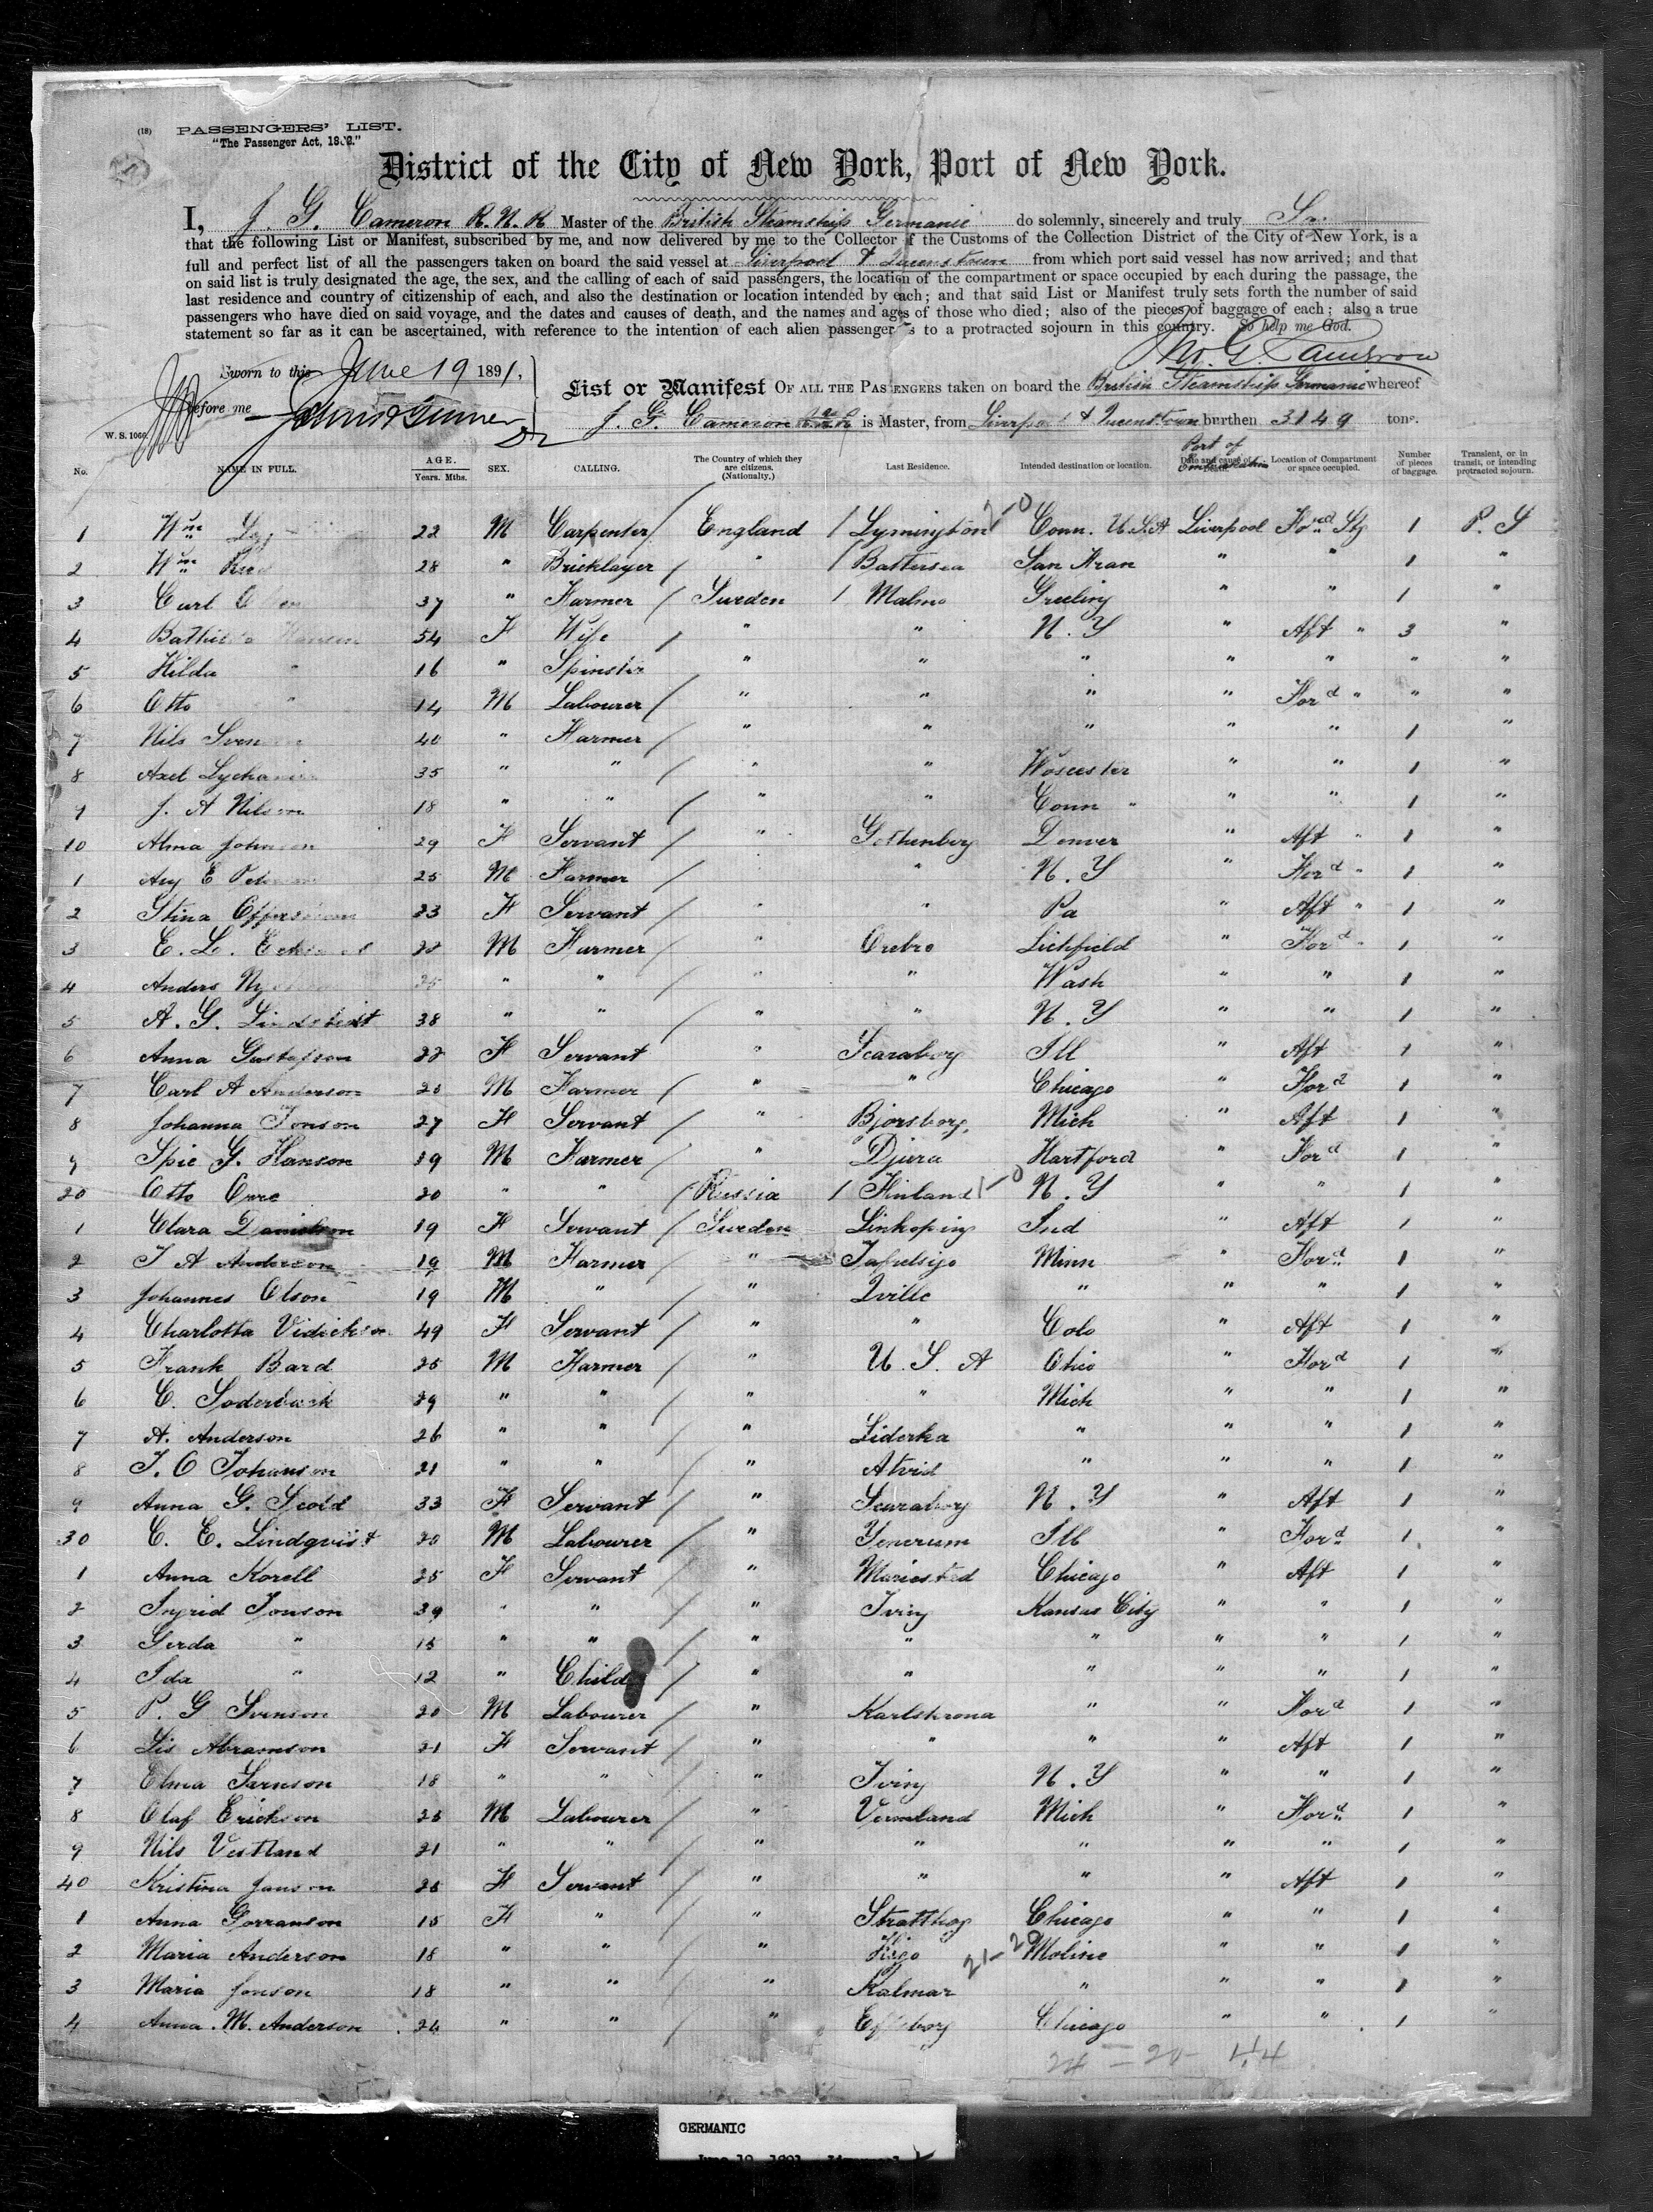 (18) PASSENGERS' LIST.
"The Passenger Act, 1882."
District of the City of New York, Port of New York.
I, J. G. Cameron R.N.R Master of the British Steamship Germanic do solemnly, sincerely and truly
that the following List or Manifest, subscribed by me, and now delivered by me to the Collector of the Customs of the Collection District of the City of New York, is a
full and perfect list of all the passengers taken on board the said vessel at Liverpool & Queenstown from which port said vessel has now arrived; and that
on said list is truly designated the age, the sex, and the calling of each of said passengers, the location of the compartment or space occupied by each during the passage, the
last residence and country of citizenship of each, and also the destination or location intended by each; and that said List or Manifest truly sets forth the number of said
passengers who have died on said voyage, and the dates and causes of death, and the names and ages of those who died; also of the pieces of baggage of each; also a true
statement so far as it can be ascertained, with reference to the intention of each alien passenger as to a protracted sojourn in this country. So help me God.
Sworn to this June 19 1891,
Before me
W. S. 1066.
List or Manifest OF ALL THE PASSENGERS taken on board the British Steamship Germanic whereof
J. G. Cameron R.N.R is Master, from Liverpool & Queenstown burthen 3149 tons.
No. NAME IN FULL. AGE. Years. Mths. SEX. CALLING. The Country of which they are citizens. (Nationality.) Last Residence. Intended destination or location. Port of Embarkation Location of Compartment or space occupied. Number of pieces of baggage. Transient, or in transit, or intending protracted sojourn.
1 Wm 22 M Carpenter / England / Lymington 2-0 Conn. U.S.A Liverpool For'd Stg 1 P. S
2 Wm 28 " Bricklayer / " / Battersea San Fran " " 1 "
3 Carl 37 " Farmer / Sweden / Malmo Greeling " " 1 "
4 Hansen 54 F Wife / " " N. Y " Aft " 3 "
5 Hilda " 16 " Spinster " " " " " " "
6 Otto " 14 M Labourer / " " " " For'd " " "
7 Nils 40 " Farmer / " " " " " 1 "
8 Axel 35 " " / " " Worcester " " 1 "
9 J. A Nilson 18 " " / " " Conn " " " 1 "
10 Alma Johnson 29 F Servant / " Gothenberg Denver " Aft " 1 "
1 25 M Farmer / " " N. Y " For'd " 1 "
2 Stina 23 F Servant / " " Pa " Aft " 1 "
3 E. L. 22 M Farmer / " Orebro Lichfield " For'd " 1 "
4 Anders 25 " " / " " Wash " " 1 "
5 A. G. Lindstedt 38 " " / " " N. Y " " 1 "
6 Anna Gustafson 22 F Servant " Scaraborg Ill " Aft 1 "
7 Carl A Anderson 20 M Farmer / " " Chicago " For'd 1 "
8 Johanna Jonson 27 F Servant / " Bjorsborg. Mich " Aft 1 "
9 G. Hanson 19 M Farmer / " Djura Hartford " For'd 1 "
20 Otto 20 " " / Russia / Finland 1-0 N. Y " " 1 "
1 Clara Danielson 19 F Servant / Sweden Linkoping Ind " Aft 1 "
2 J A Anderson 19 M Farmer / " Minn " For'd 1 "
3 Johannes Olson 19 M " / " Qville " " " 1 "
4 Charlotta Vidickson 49 F Servant / " " Colo " Aft 1 "
5 Frank Bard 25 M Farmer / " U. S. A Ohio " For'd 1 "
6 C. Soderback 29 " " / " " Mich " " 1 "
7 A. Anderson 26 " " / " Liderka " " " 1 "
8 J. O Johanson 21 " " / " Atvid " " " 1 "
9 Anna G. Scold 33 F Servant / " Scaraborg N. Y " Aft 1 "
30 C. E. Lindqvist 20 M Labourer / " Yenerum Ill " For'd 1 "
1 Anna Korell 25 F Servant / " Mariested Chicago " Aft 1 "
2 Ingrid Jonson 39 " " / " Iviny Kansas City " " 1 "
3 Gerda " 15 " " / " " " " " 1 "
4 Ida " 12 " Child / " " " " " 1 "
5 P. G Svenson 20 M Labourer / " Karlskrona " " For'd 1 "
6 Lis Abramson 21 F Servant / " " " " Aft 1 "
7 Elma Larnson 18 " " / " Iviny N. Y " " 1 "
8 Olaf Erickson 25 M Labourer / " Vermland Mich " For'd 1 "
9 Nils Vestland 21 " " / " " " " " 1 "
40 Kristina Janson 25 F Servant / " " " " Aft 1 "
1 Anna Gorranson 15 F " / " Chicago " " 1 "
2 Maria Anderson 18 " " / " 21-20 Moline " " 1 "
3 Maria Jonson 18 " " / " Kalmar " " " 1 "
4 Anna. M. Anderson 24 " " / " Chicago " " 1 "
24 - 20 - 44
GERMANIC